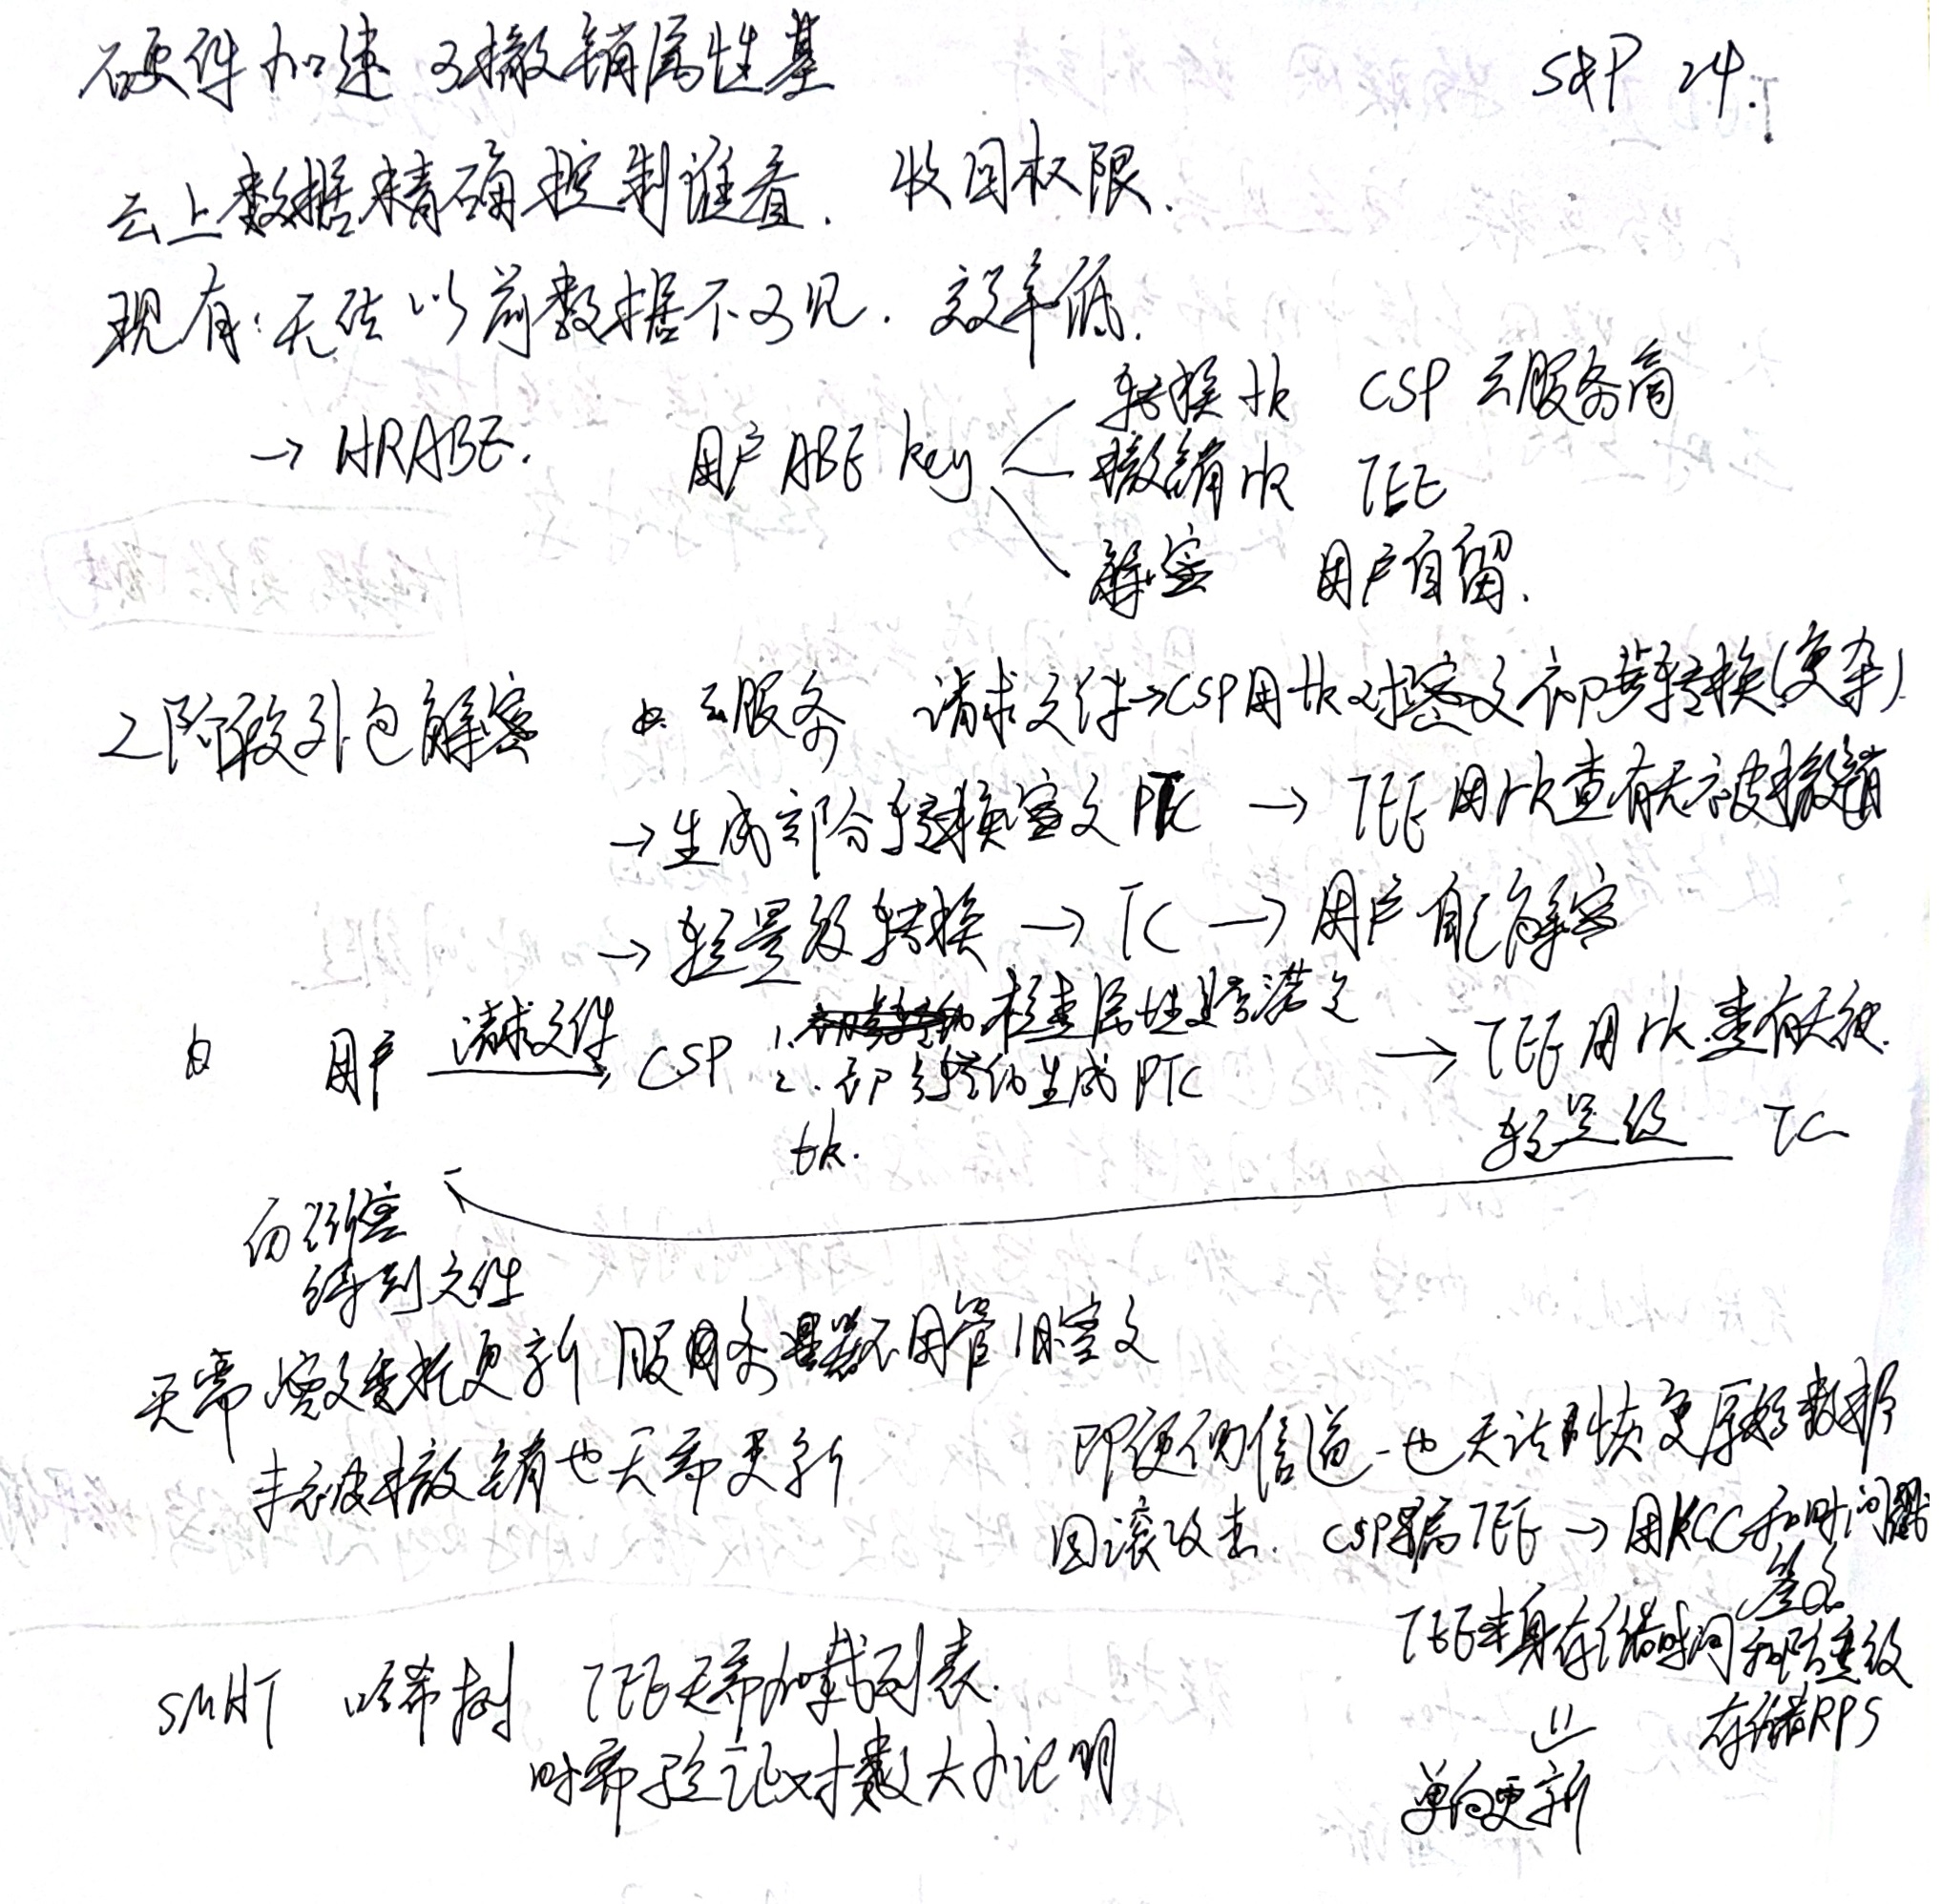 硬件加速 可撤销属性基 S&P 24.
云上数据精确控制谁看. 收回权限.
现有: 无法以前数据不可见. 效率低.
→ HRABE. 用户ABE key
转换tk CSP 云服务商
撤销rk TEE
解密 用户自留.
2阶段外包解密 云服务 请求文件→CSP用tk对密文初步转换(复杂)
→生成部分转换密文PTC → TEE用rk查有无被撤销
→ 轻量级转换 → TC → 用户自己解密
用户 请求文件 CSP 1. 检查属性是否满足 → TEE用rk.查有无被.
2. 部分转换生成PTC
tk. 轻量级 TC
解密
得到文件
无需密文委托更新 服务器不用管旧密文
未被撤销也无需更新
即便侧信道也无法恢复原始数据
回滚攻击. CSP骗TEE → 用KCC和时间戳
签名
TEE本身存储时间和防重放
存储RPS
⇓
单向更新
SMHT 哈希树 TEE无需加载列表.
时需验证对数大小证明